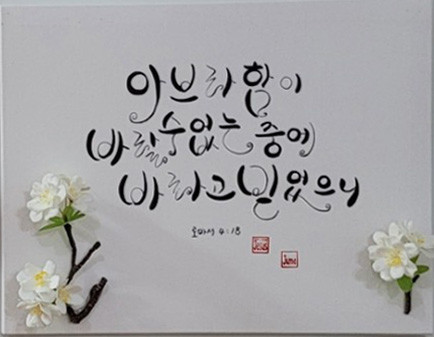 아브라함이
바랄 수 없는 중에
바라고 믿었으니
로마서 4:18
Jesus
June